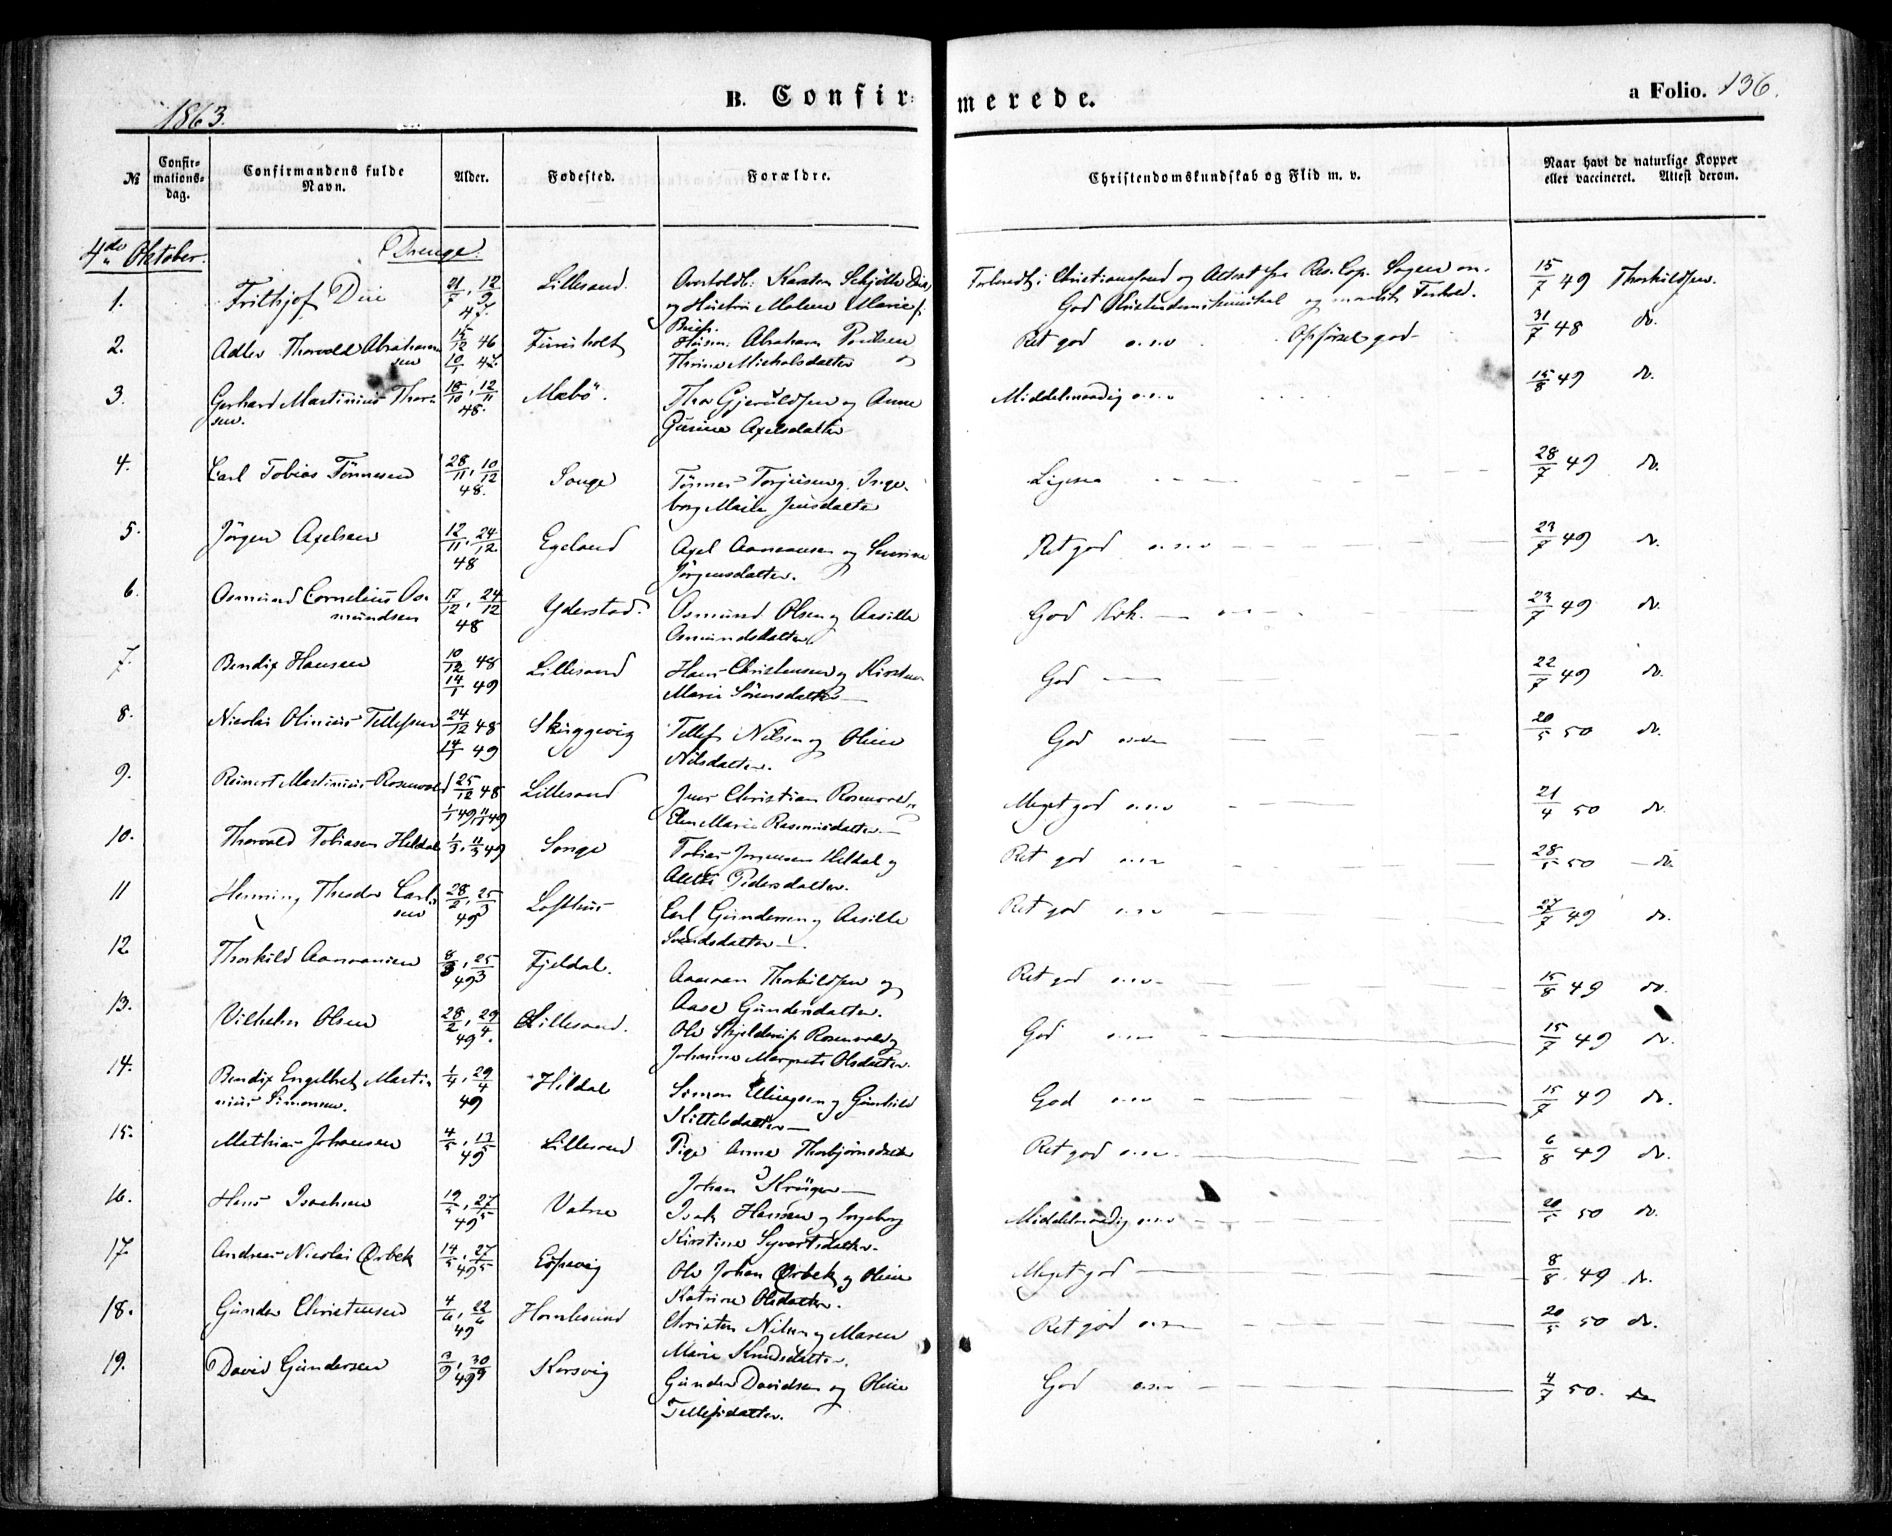 1863.
B. Confirmerede.
a Folio. 136.
№
Confirmationsdag.
Confirmandens fulde Navn.
Alder.
Fødested.
Forældre.
Christendomskundskab og Flid m. v.
Naar havt de naturlige Kopper eller vaccineret. Attest derom.
4de Oktober.
Drenge.
1. Frithjof Due 21/7, 12/9 47. Lillesand.
og Hustru Maren Marie f. 15/7 49 Thorkildsen.
2. Adler Thorvald Abrahamsen 15/12 46 10/1 47. Abraham
Thrine Nicholsdatter Ret god Opførsel god 31/7 48 do.
3. Gerhard Martinius Thorsen. 18/10, 12/11 48. Mæbö. Thor Gjeruldsen og Anne
Gurine Axelsdatter Middelmaadig 15/8 49 do.
4. Carl Tobias Tönnesen 28/11, 10/12 48. Songe Tönnes Torjusen og Inge-
borg Marie Jensdatter Ligesaa 28/7 49 do.
5. Jörgen Axelsen 12/11, 24/12 48 Egeland Axel Aanonsen og
Jörgensdatter. Ret god 23/7 49 do.
6. Osmund Cornelius Osmundsen 17/12, 24/12 48 Yderstad. Osmund Olsen og Aasille
Osmundsdatter God 23/7 49 do.
7. Bendix Hansen 10/12 48 14/1 49 Lillesand Hans Christensen og Kirsten
Marie Sörensdatter God 22/7 49 do.
8. Nicolai Olinius Tellefsen 24/12 48 14/1 49 Skiggevig Tellef Nilsen og Oline
Nilsdatter. God 20/5 50 do.
9. Reinert Martinius Rosenvold 25/12 48 Lillesand Jens Christian Rosenvold
Ellen Marie Rasmusdatter Meget god 21/4 50 do.
10. Thorvald Tobiasen Heldal 1/3, 11/3 49 Songe Tobias Jorgensen Heldal og
Pedersdatter. Ret god 28/5 50 do.
11 Henning Theodor Carlsen 28/2, 25/3 49 Lofthus Carl Gundersen og Aasille
Svendsdatter Ret god 27/7 49 do.
12. Thorkild Aanonsen 8/3, 25/3 49 Fjeldal. Aanon Thorkildsen og
Aase Gundersdatter. Ret god 15/8 49 do.
13. Vilhelm Olsen 28/2, 29/4 49. Lillesand. Ole Skjelderup Rosenvold og
Johanne Margrete Olsdatter. God 15/7 49 do.
14. Bendix Engelbret Martinius Simonsen. 1/4, 29/4 49 Hildal Simon Ellingsen og Gunhild
Kittelsdatter God 15/7 49 do.
15. Mathias Johansen 4/5, 17/5 49 Lillesand Pige Anne Thorbjörnsdatter
Johan Krüger Ret god 6/8 49 do.
16. Hans Isachsen 19/5, 27/5 49 Vatne Isak Hansen og Ingeborg
Kirstine Syvertsdatter. Middelmaadig 20/5 50 do.
17. Andreas Nicolai Örbek 14/5, 27/5 49 Ole Johan Örbek og Oline
Katrine Olsdatter. Meget god 8/8 49 do.
18. Gunder Christensen 4/6, 22/6 49 Homlesund Christen Nilsen og Maren
Marie Knudsdatter. Ret god 20/5 50 do.
19. David Gundersen 3/9, 30/9 49 Korsvig Gunder Davidsen og Oline
Tellefsdatter. God 4/7 50. do